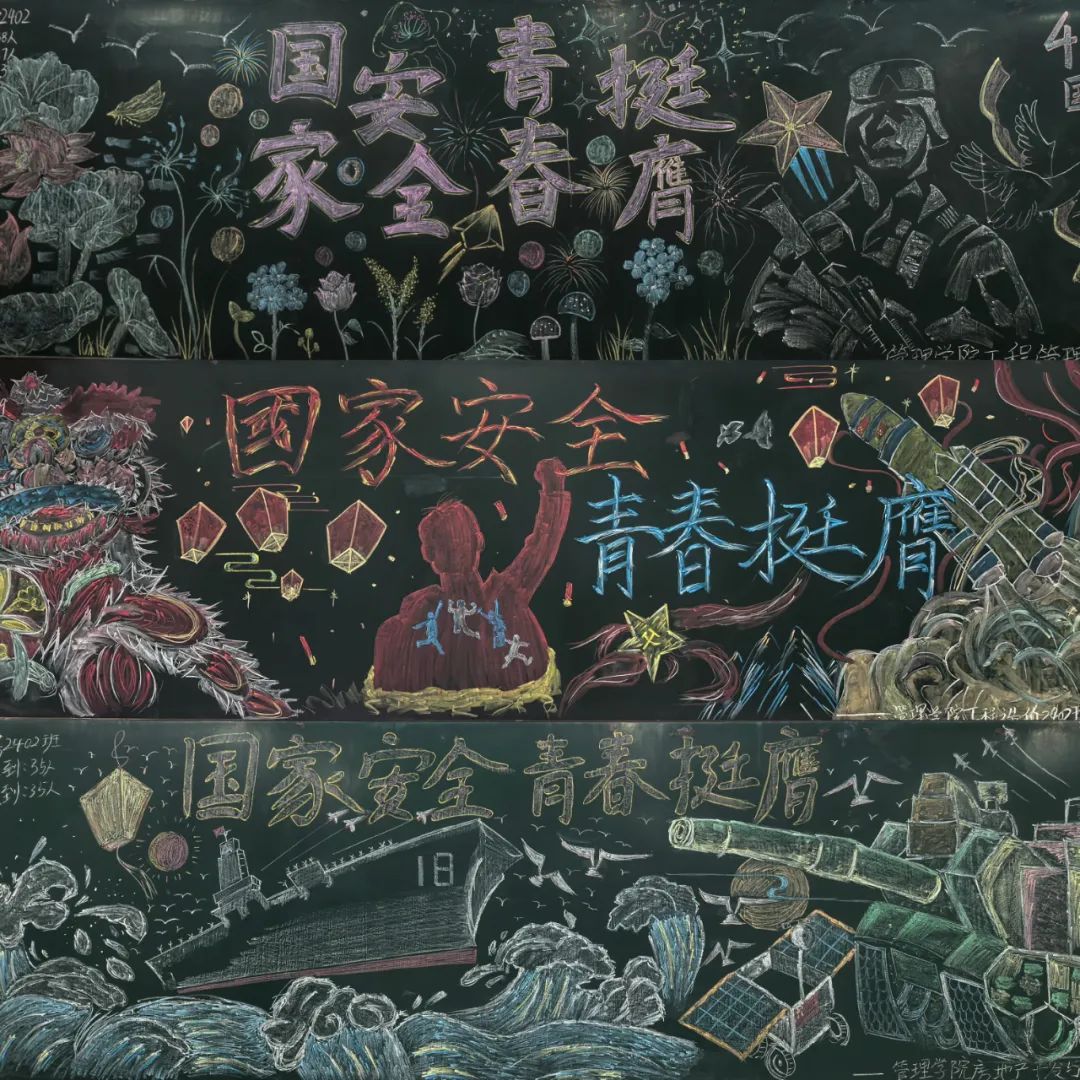 2402
8人
国家安全 青春挺膺
管理学院工程管理
國家安全
青春挺膺
管理学院工程造价2402
2402班
到:35人
到:35人
国家安全 青春挺膺
18
管理学院房地产